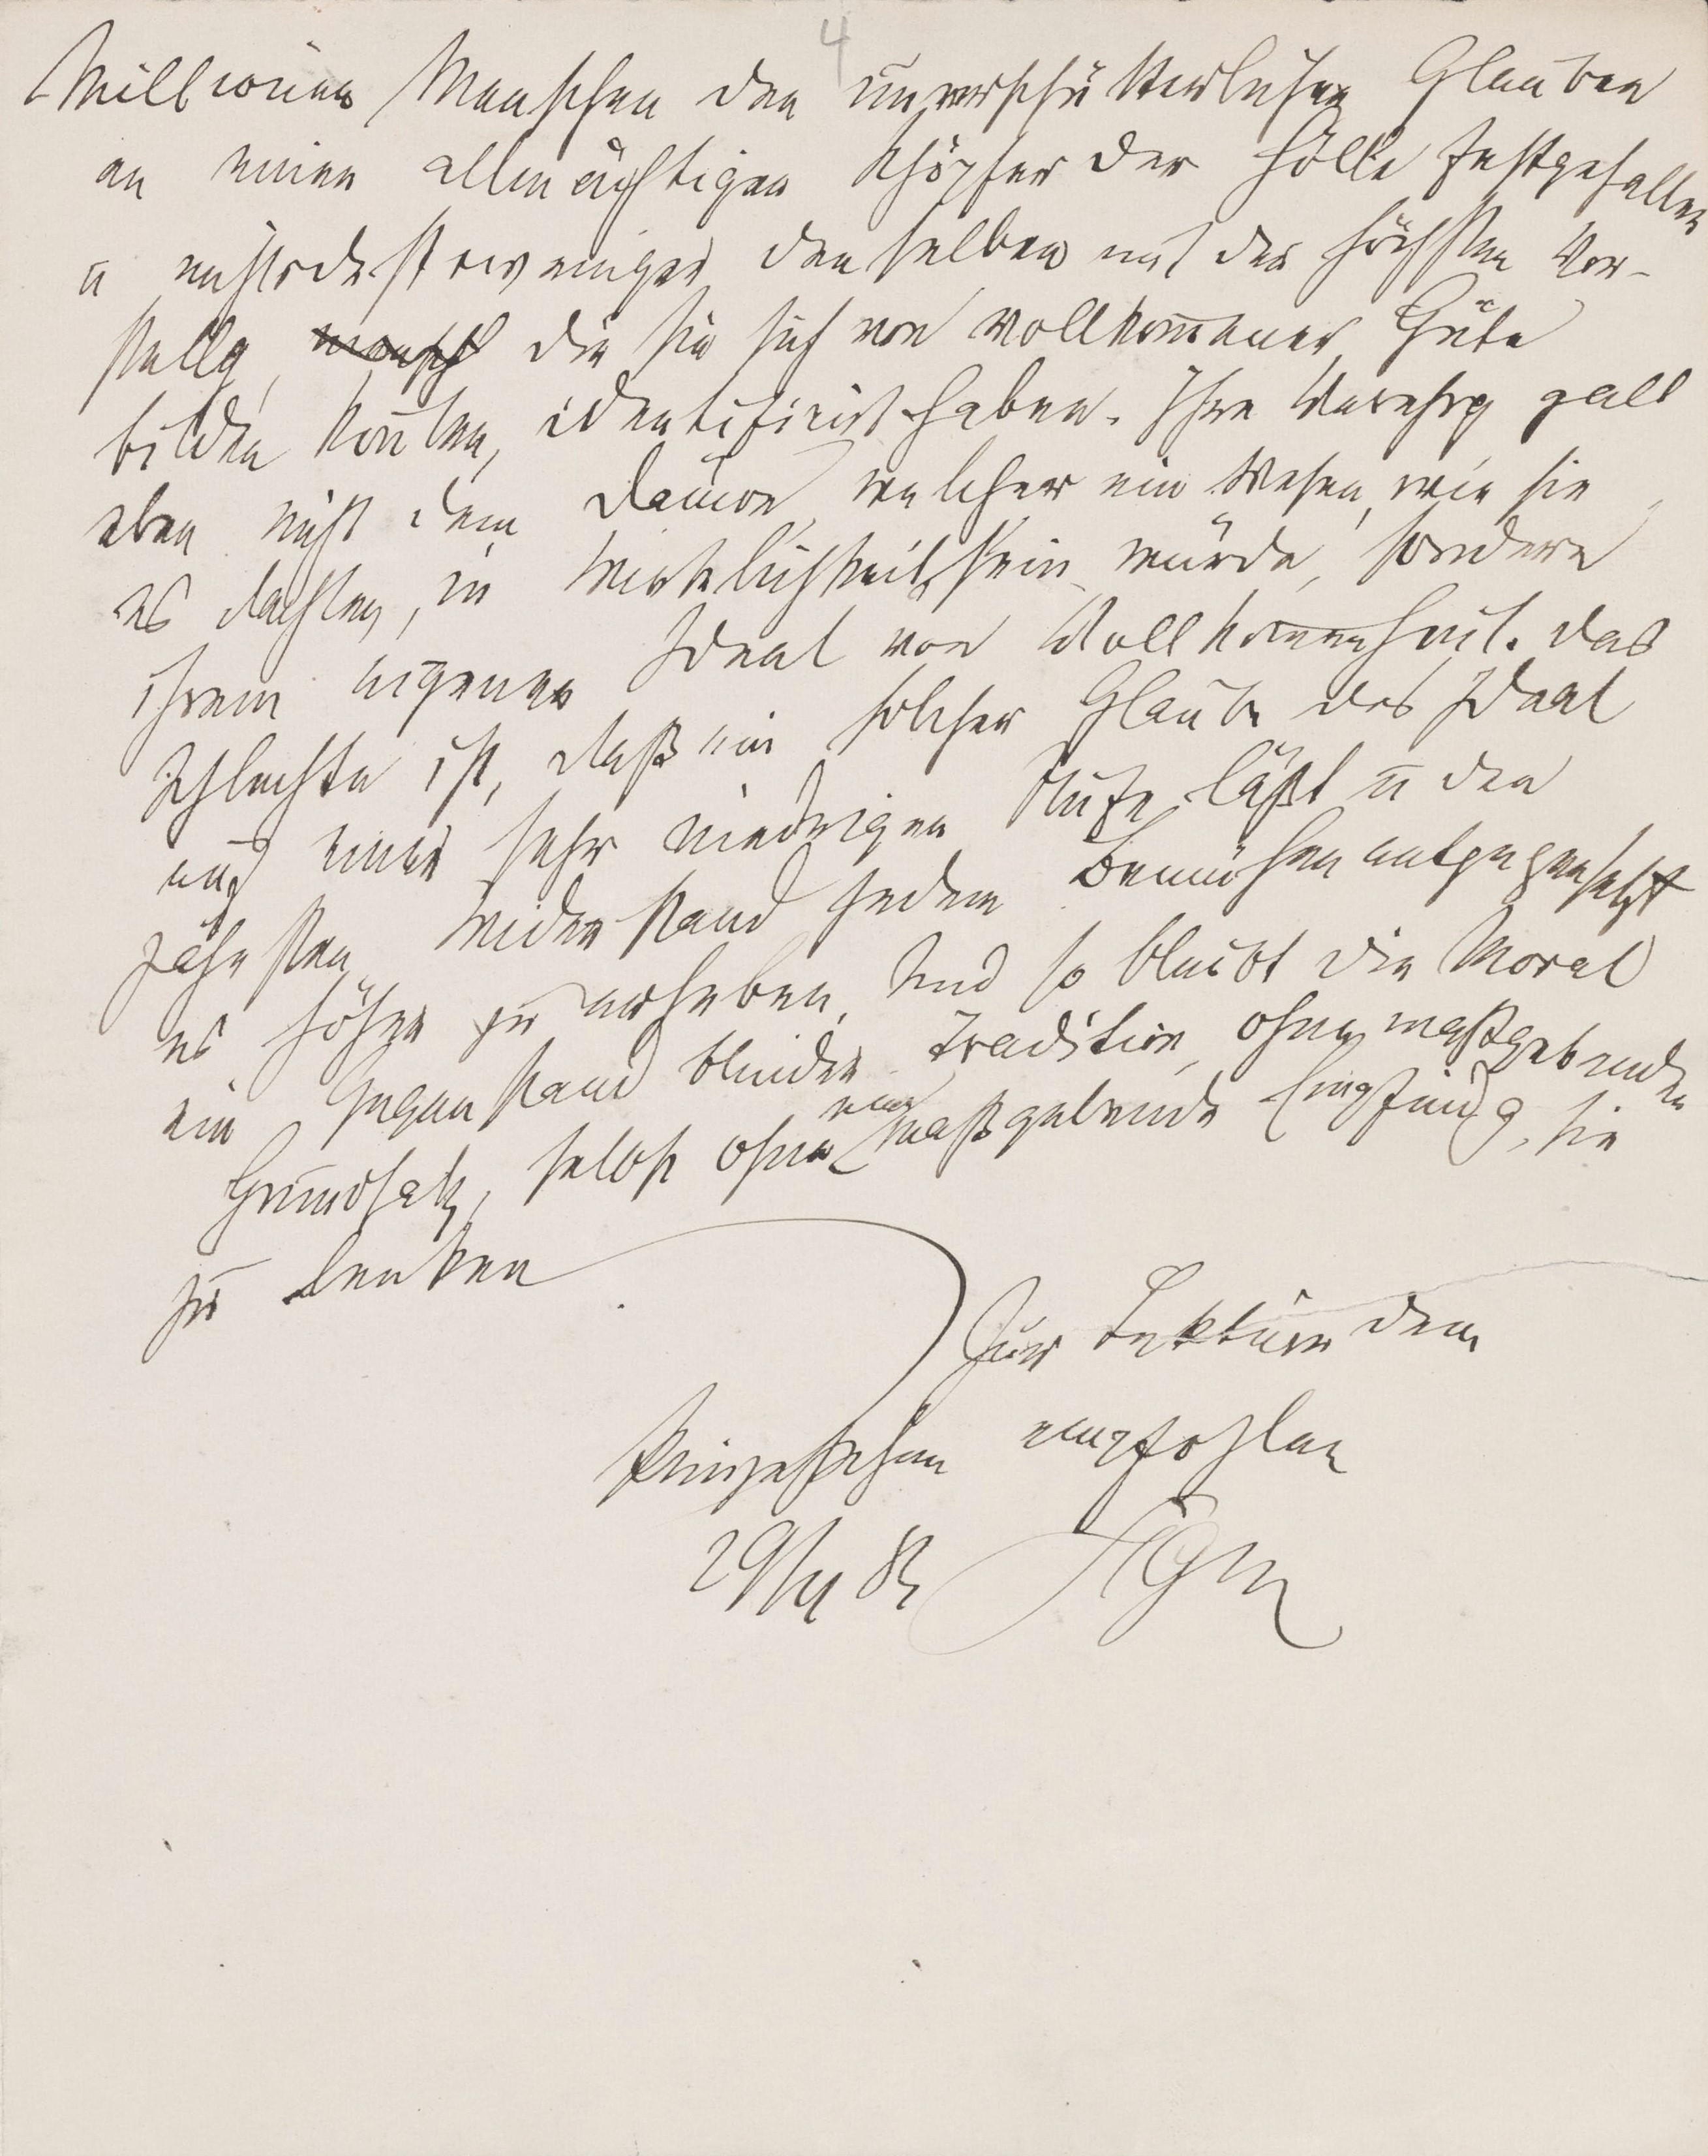 4
Millionen Menschen den unerschütterlichen Glauben
an einen allmächtigen Schöpfer der Hölle festgehalten
u nichtsdestoweniger denselben mit der höchsten Vor-
stellg, die sie sich von vollkom̄ener Güte
bilden kon̄ten, identificirt haben. Ihre Verehrg galt
eben nicht dem Dämon, welcher ein Wesen, wie sie
es dachten, in Wirklichkeit sein würde, sondern
ihrem eigenen Ideal von Vollkom̄enheit. Das
Schlechte ist, daß ein solcher Glaube das Ideal
auf einer sehr niedrigen Stufe läßt u den
zähesten Widerstand jedem Bemühen entgegensetzt
es höher zu erheben. Und so bleibt die Moral
ein Gegenstand blinder Tradition, ohne maßgebenden
Grundsatz, selbst ohne eine maßgebende Empfindg, sie
zu lenken
Zur Lektüre dem
Prinzeßchen empfohlen
29/11 85